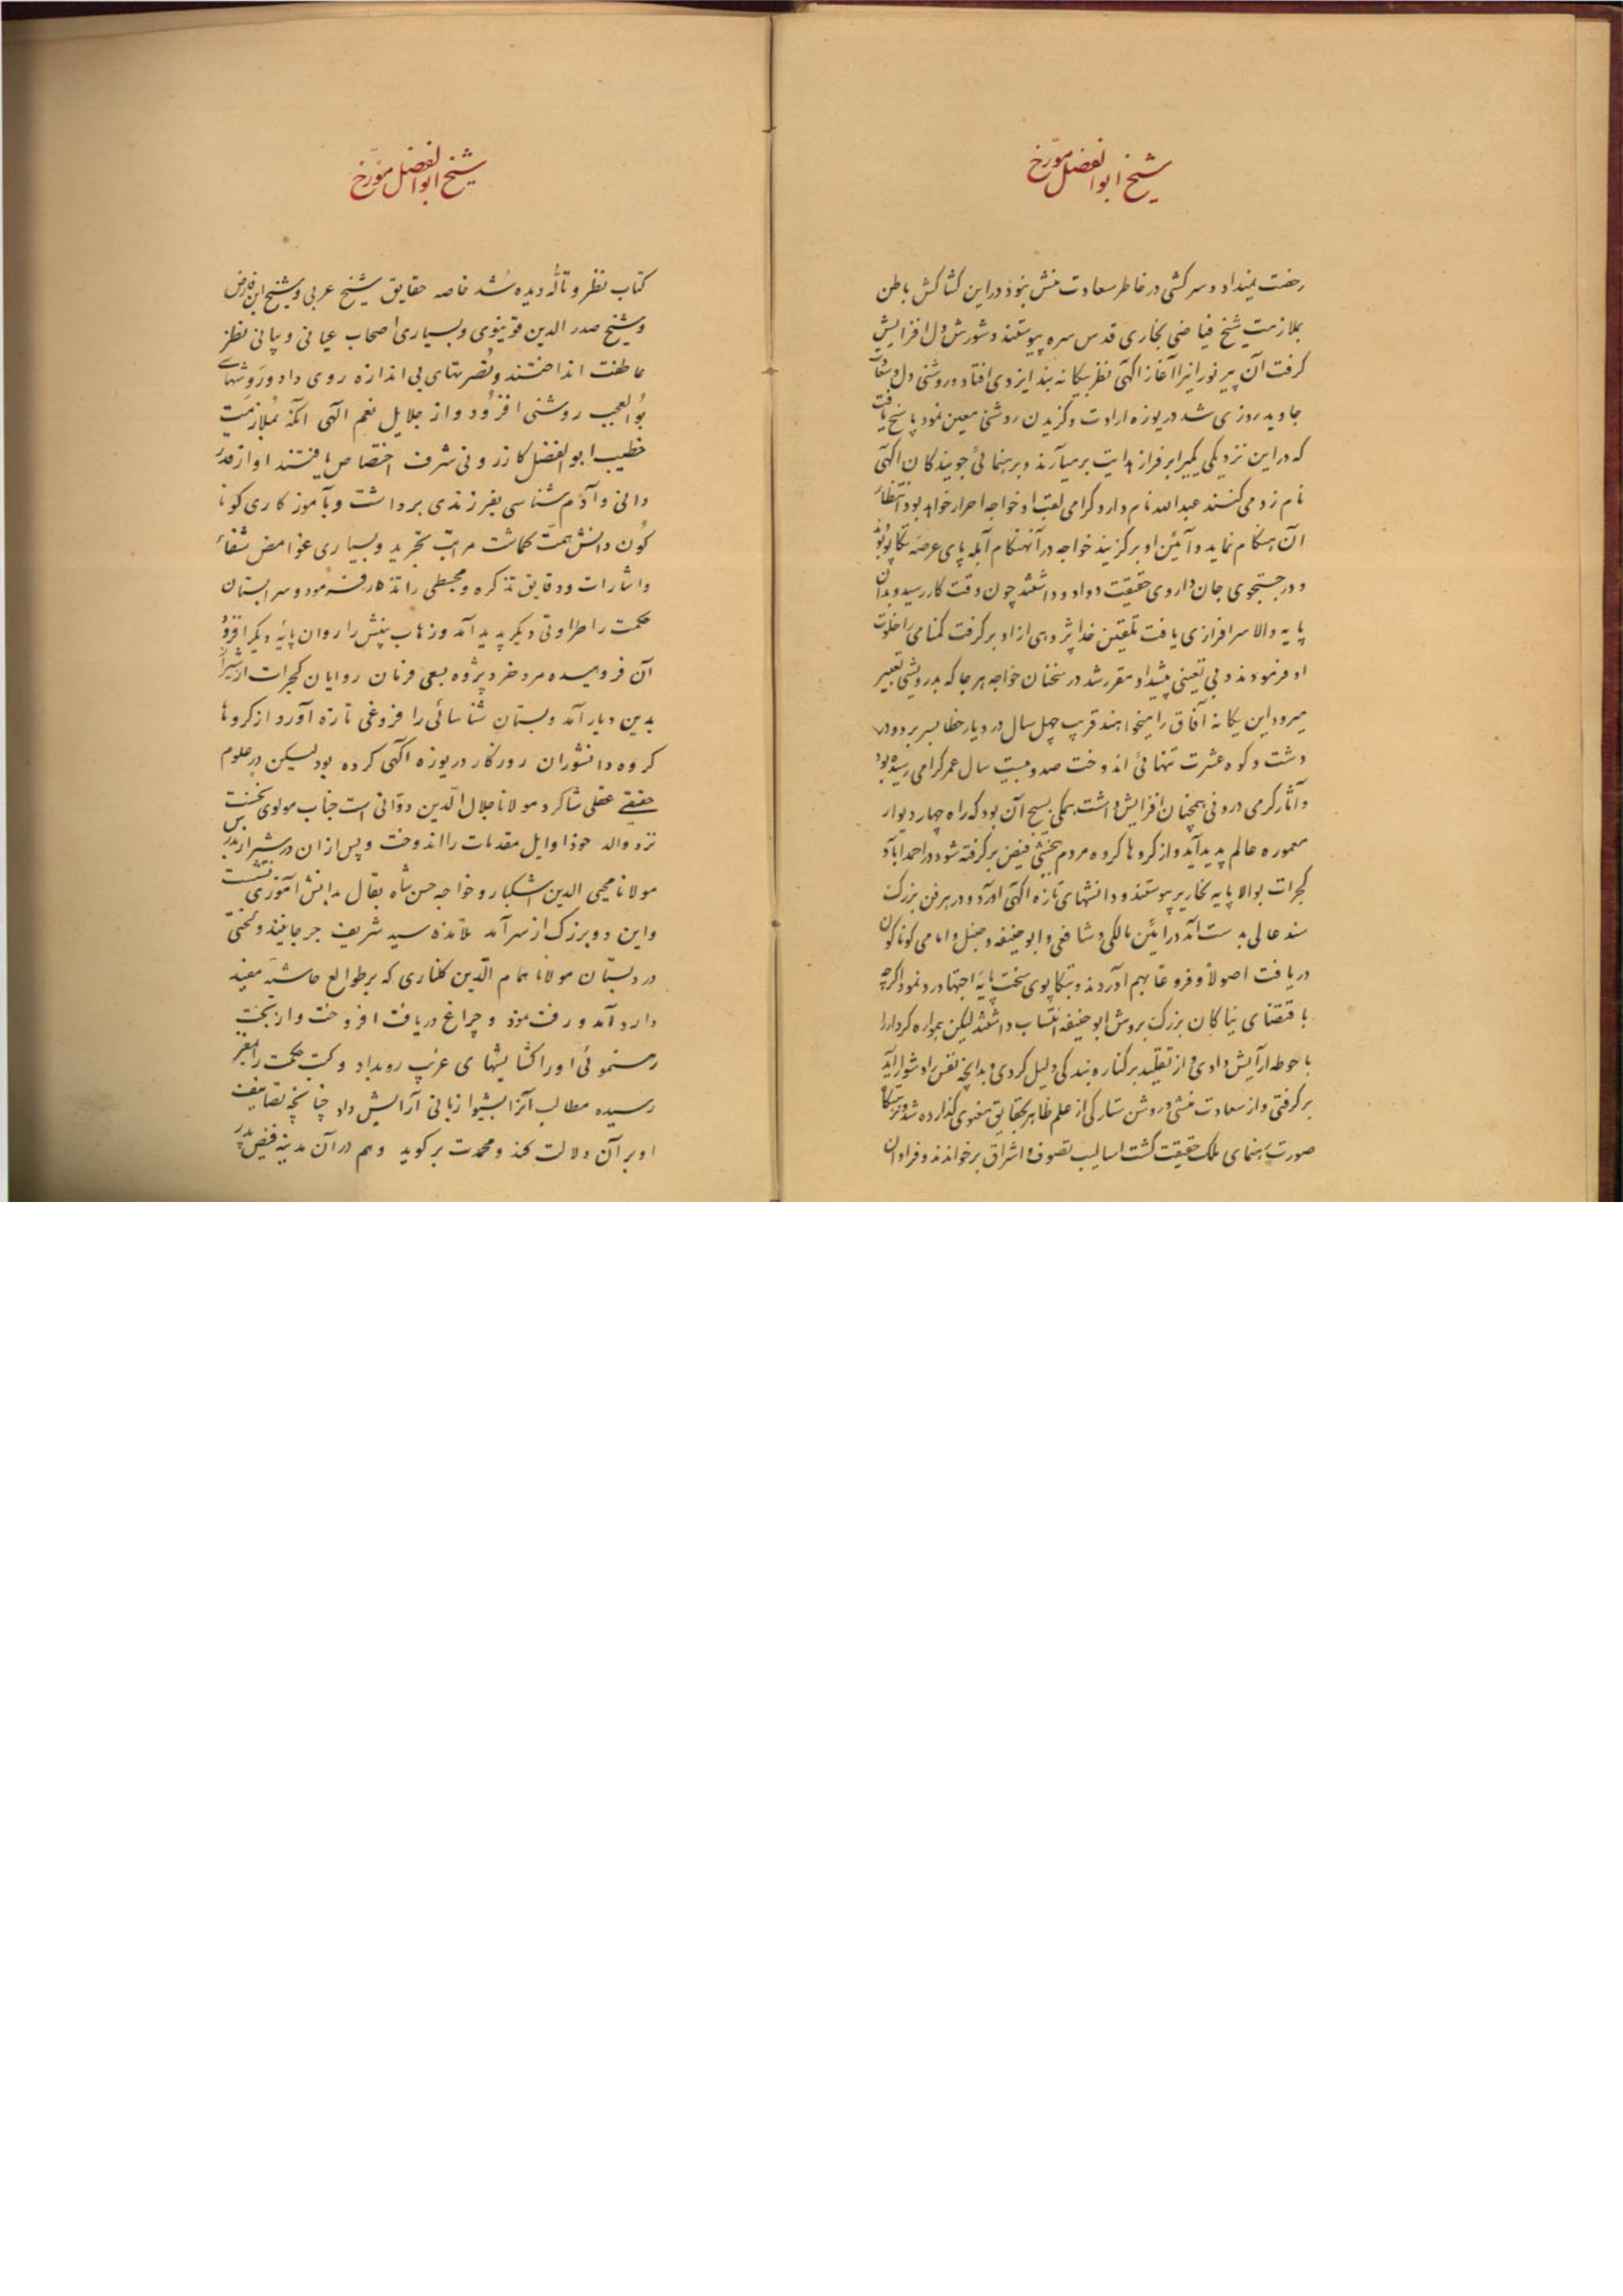 شیخ ابوالفضل مورّخ
رخصت نمیداد و سرکشی در خاطر سعادت منش نبود در این کشاکش باطن
بملازمت شیخ فیاضی بخاری قدس سره پیوستند و شورش دل افزایش
گرفت آن پیر نورانیرا آغاز آگهی نظر بیگانه بند ایزدی افتاد و روشنی دل و سعادت
جاوید روزی شد دریوزه ارادت و گزیدن روشنی معین نمود پاسخ یافت
که در این نزدیکی یکیرا بر فراز هدایت برمیآرند و برهنمائی جویندگان آگهی
نامزد می کنند عبدالله نام دارد و گرامی لقب او خواجه احرار خواهد بود انتظار
آن هنگام نماید و آئین او برگزیند خواجه در آنهنگام آبله پای عرصه تکاپو بودند
و در جستجوی جان داروی حقیقت دوادو داشتند چون وقت کار رسید و بدان
پایه والا سرافرازی یافت تلقین خدا پژوهی از او برگرفت گمنامی را خلوت
او فرمودند و بی تعینی پیشداد مقرر شد در سخنان خواجه هر جا که بدرویشی تعبیر
میرود این یگانه آفاق را میخواهند قریب چهل سال در دیار خطا بسر برد و در
دشت و کوه عشرت تنهائی اندوخت صد و بیست سال عمر گرامی رسیده بود
و آثار گرمی درونی همچنان افزایش داشت همگی بسیج آن بود که راه چهار دیوار
معموره عالم پدید آید و از گروها گروه مردم بخشی فیض برگرفته شود در احمدآباد
گجرات بوالا پایه نحاریر پیوستند و دانشهای تازه آگهی آورد و در هر فن بزرگ
سند عالی بدست آمد در ائین مالکی و شافعی و ابوحنیفه و حنبل و امامی گوناگون
دریافت اصولاً و فروعاً بهم آوردند و بتکاپوی سخت پایه اجتهاد رو نمود اگرچه
باقتضای نیاکان بزرگ بروش ابوحنیفه انتساب داشتند لیکن همواره کردار را
باحوطه آرایش دادی و از تقلید بر کناره بندگی دلیل کردی و بدانچه نفس را دشوار آید
برگرفتی و از سعادت منشی و روشن ستارگی از علم ظاهر بحقایق معنوی گذارده شد و نزهتگاه
صورت رهنمای ملک حقیقت گشت اسالیب تصوف و اشراق برخواندند و فراوان
شیخ ابوالفضل مورّخ
کتاب نظر و تألّه دیده شد خاصه حقایق شیخ عربی و شیخ ابن فارض
و شیخ صدرالدین قونیوی و بسیاری اصحاب عیانی و بیانی نظر
عاطفت انداختند و نصرتهای بی اندازه روی داد و روشهای
بوالعجب روشنی افزود و از جلایل نعم الهی آنکه بملازمت
خطیب ابوالفضل کازرونی شرف اختصاص یافتند او از قدر
دانی و آدم شناسی بفرزندی برداشت و بآموزگاری گونا
گون دانش همّت گماشت مراتب تجرید و بسیاری غوامض شفاء
و اشارات و دقایق تذکره و مجسطی را تذکار فرمود و سرابستان
حکمت را طراوتی دیگر پدید آمد و زهاب بینش را روان پایه دیگر افزود
آن فرومیده مرد خرد پژوه بسعی فرمان روایان گجرات از شیراز
بدین دیار آمد و بستان شناسائی را فروغی تازه آورد از گروها
گروه دانشوران روزگار دریوزه آگهی کرده بود لیکن در علوم
حقیقی عقلی شاگرد مولانا جلال الدّین دوّانی است جناب مولوی نخست
نزد والد خود اوایل مقدمات را اندوخت و پس از آن در شیراز بدرس
مولانا محیی الدین اشکبار و خواجه حسن شاه بقال بدانش آموزی نشست
و این دو بزرگ از سرآمد تلامذه سید شریف جرجانیند و لختی
در دبستان مولانا همام الدّین گلناری که بر طوالع حاشیه مفید
دارد آمد و رفت نمود و چراغ دریافت افروخت و از بخت
رهنمونی او را گشایشهای غریب رویداد و کتب حکمت را بمغز
رسیده مطالب آنرا بشیوا زبانی آرایش داد چنانچه تصانیف
او بر آن دلالت کند و محمدت برگوید و هم در آن مدینه فیض پدر